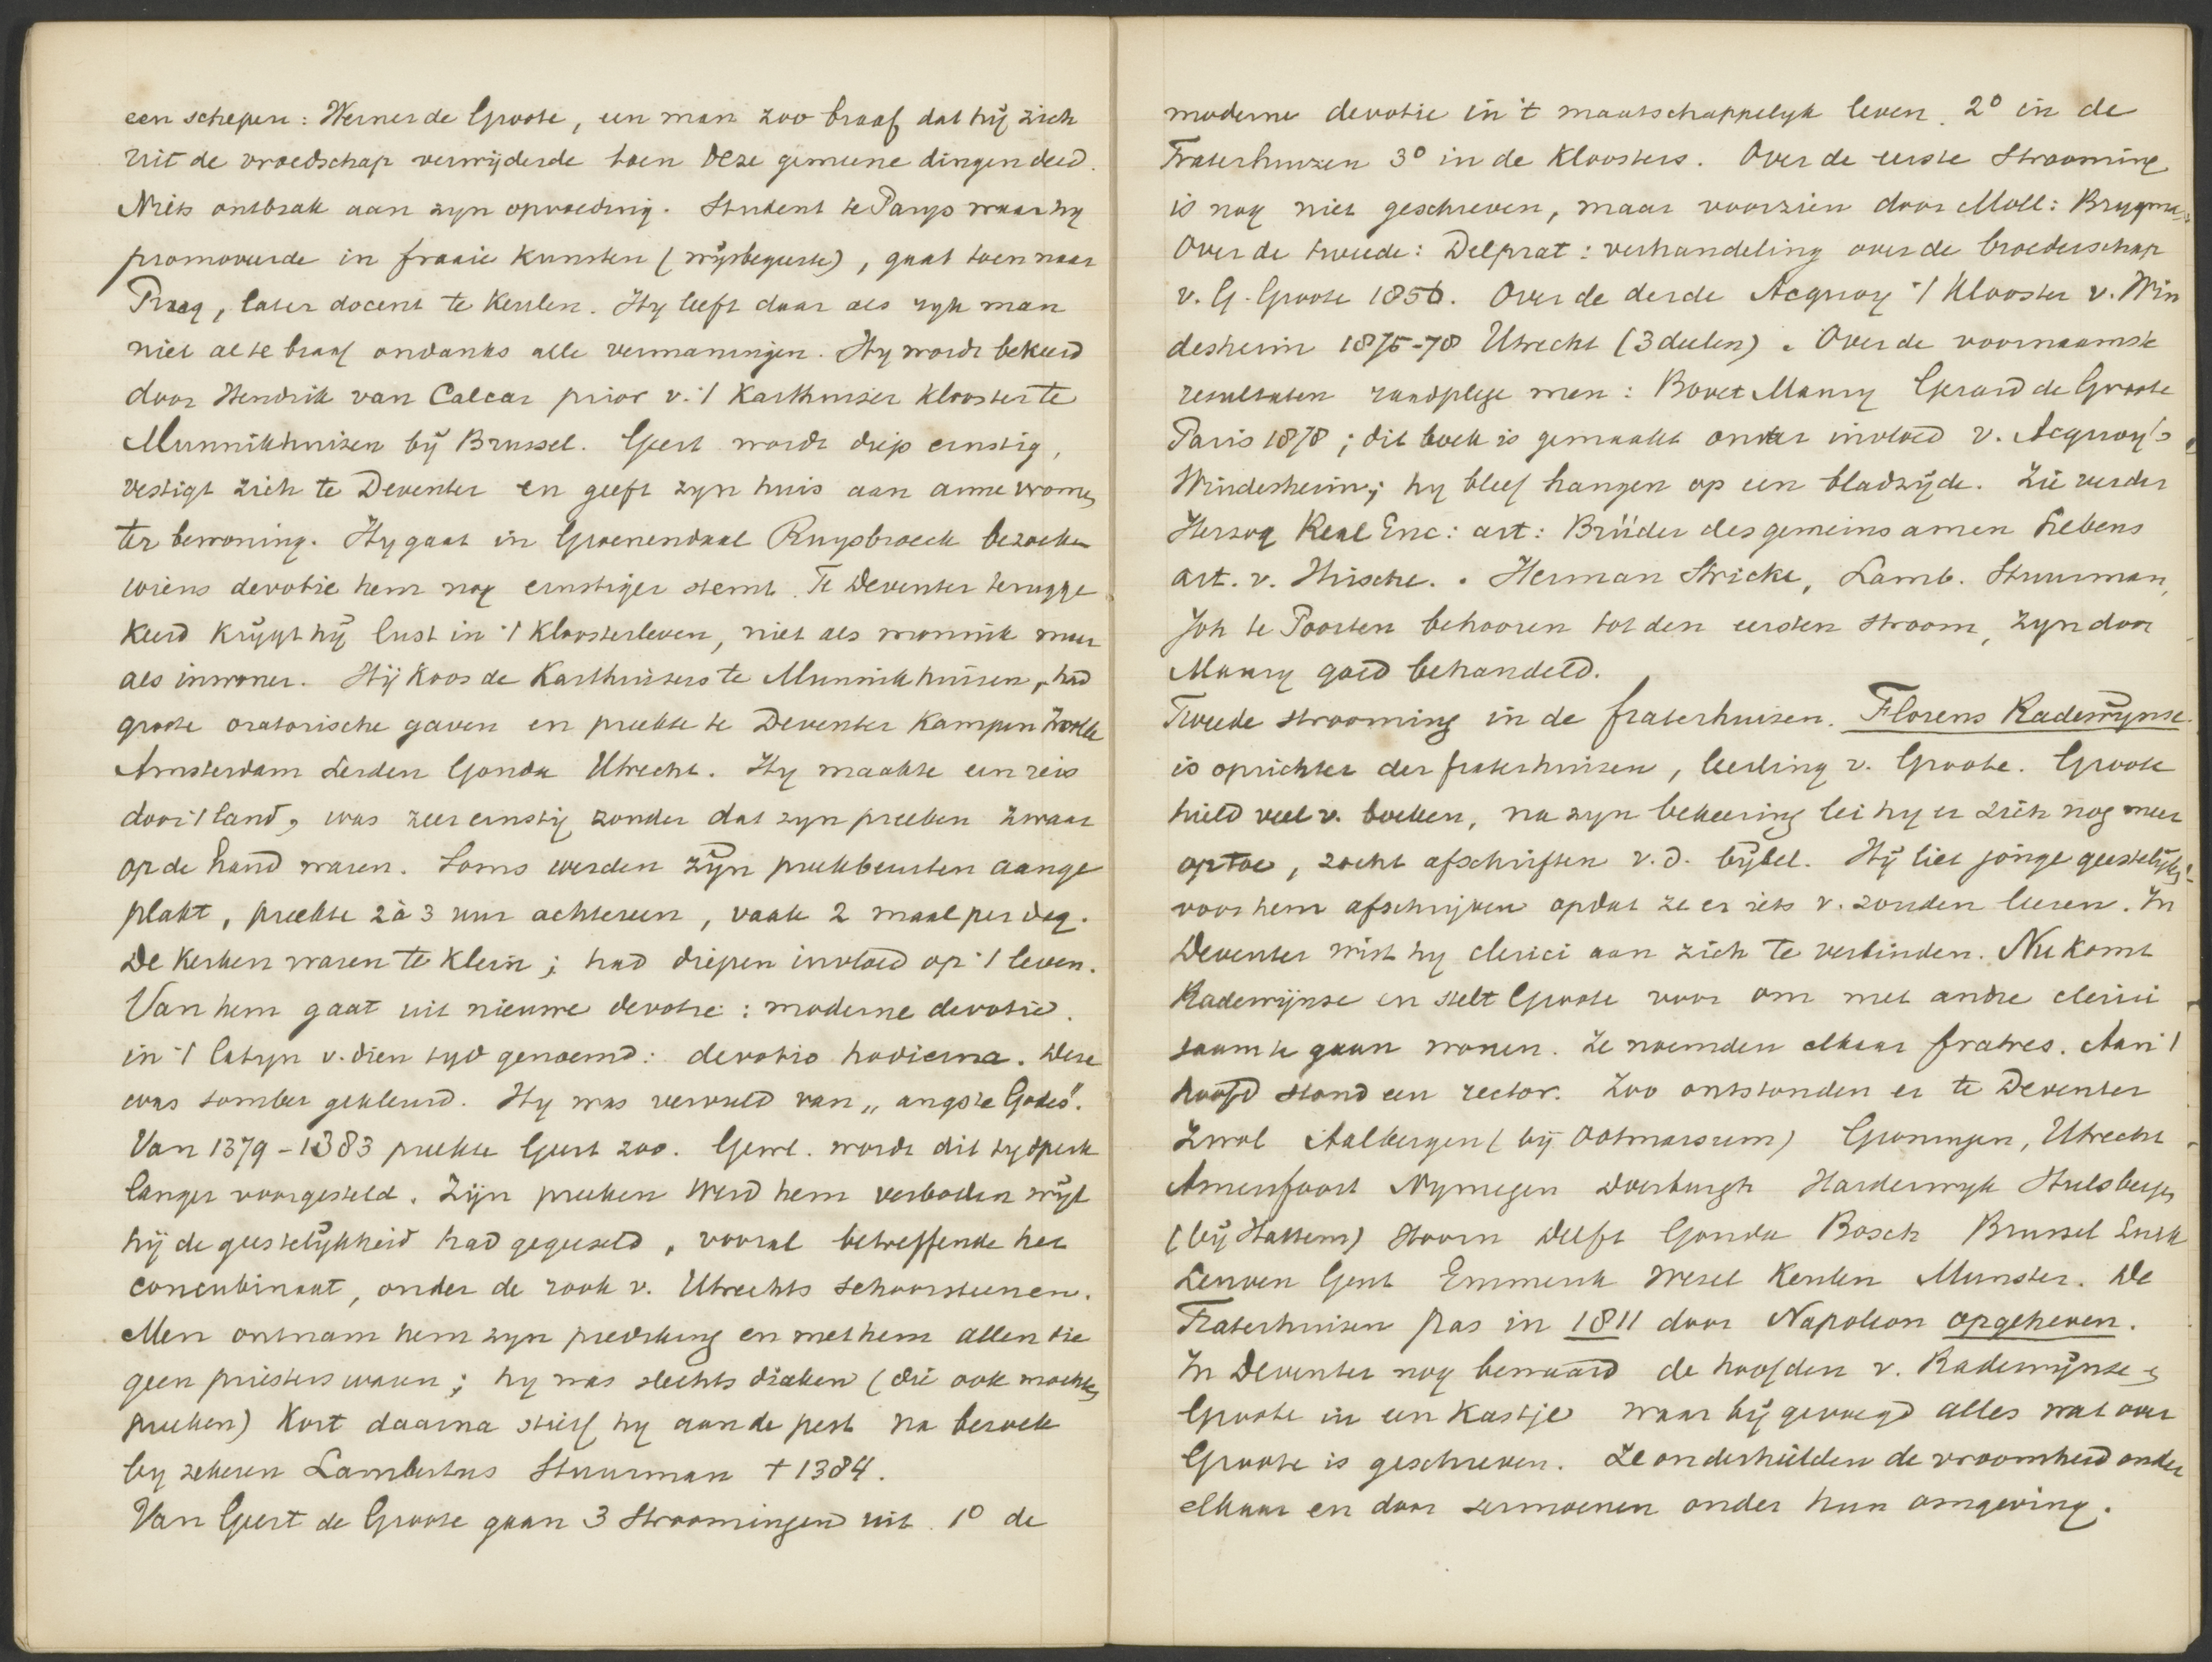 een schepen: Werner de Groote, een man zoo braaf dat hij zich
uit de vroedschap verwijderde toen deze gemeene dingen deed.
Niets ontbrak aan zyn opvoeding. Student te Parys waar hy
promoveerde in fraaie kunsten (wijsbegeerte), gaat toen naar
Praag, later docent te Keulen. Hy leeft daar als ryk man
niet al te braaf ondanks alle vermaningen. Hy wordt bekeerd
door Hendrik van Calcar prior v. 't Karthuiser klooster te
Munnikhuisen bij Brussel. Geert wordt diep ernstig,
vestigt zich te Deventer en geeft zyn huis aan arme vrouwen
ter bewoning. Hy gaat in Groenendaal Ruysbroeck bezoeken
wiens devotie hem nog ernstiger stemt. Te Deventer terugge
keerd krijgt hij lust in 't kloosterleven, niet als monnik maar
als inwoner. Hij koos de Karthuisers te Munnikhuisen, had
groote oratorische gaven en preekte te Deventer Kampen Zwolle
Amsterdam Leiden Gouda Utrecht. Hy maakte een reis
door 't land, was zeer ernstig zonder dat zyn preeken zwaar
op de hand waren. Soms werden zijn preekbeurten aange
plakt, preekte 2 à 3 uur achtereen, vaak 2 maal per dag.
De kerken waren te klein; had diepen invloed op 't leven.
Van hem gaat uit nieuwe devotie: moderne devotie.
in 't latyn v. dien tyd genoemd: devotio hodierna. Deze
was somber gekleurd. Hy was vervuld van „angste Godes".
Van 1379 - 1383 preekte Geert zoo. Gewl. wordt dit tydperk
langer voorgesteld. Zijn preeken werd hem verboden wijl
hij de geestelijkheid had gegeeseld, vooral betreffende het
concubinaat, onder de rook v. Utrechts schoorsteenen.
Men ontnam hem zyn prediking en met hem allen die
geen priesters waren; hy was slechts diaken (die ook mochten
preeken) Kort daarna stierf hy aan de pest na bezoek
by zekeren Lambertus Stuurman † 1384.
Van Geert de Groote gaan 3 Stroomingen uit. 1° de
moderne devotie in 't maatschappelyk leven. 2° in de
Fraterhuizen 3° in de Kloosters. Over de eerste Strooming
is nog niet geschreven, maar voorzien door Moll: Brugman.
Over de tweede: Delprat: verhandeling over de broederschap
v. G. Groote 1856. Over de derde Acquoy 't Klooster v. Win
desheim 1875-78 Utrecht (3 deelen). Over de voornaamste
resultaten raadplege men: Bonet Maury Gerard de Groote
Paris 1878; dit boek is gemaakt onder invloed v. Acquoy's
Windesheim; hy bleef hangen op een bladzijde. Zie verder
Herzog Real Enc: art: Brüder des gemeinsamen Lebens
art. v. Hirsche. Herman Stricke, Lamb. Stuurman,
Joh te Poorten behooren tot den eersten stroom, zyn door
Maury goed behandeld.
Tweede strooming in de fraterhuisen. Florens Radewijnse.
is oprichter der fraterhuisen, leerling v. Groote. Groote
hield veel v. boeken, na zyn bekeering lei hy er zich nog meer
op toe, zocht afschriften v. d. bijbel. Hij liet jonge geestelijken
voor hem afschrijven opdat ze er iets v. zouden leeren. In
Deventer wist hy clerici aan zich te verbinden. Nu komt
Radewijnse en stelt Groote voor om met andre clerici
saam te gaan wonen. Ze noemden elkaar fratres. Aan 't
hoofd stond een rector. Zoo ontstonden er te Deventer
Zwol Aalbergen (bij Ootmarsum) Groningen, Utrecht
Amersfoort Nymegen Doesburgh Harderwyk Hulsbergen
(bij Hattem) Hoorn Delft Gouda Bosch Brussel Luik
Leuven Gent Emmerik Wesel Keulen Munster. De
Fraterhuisen pas in 1811 door Napoleon opgeheven.
In Deventer nog bewaard de hoofden v. Radewijnse en
Groote in een kastje waar bij gevoegd alles wat over
Groote is geschreven. Ze onderhielden de vroomheid onder
elkaar en door sermoenen onder hun omgeving.